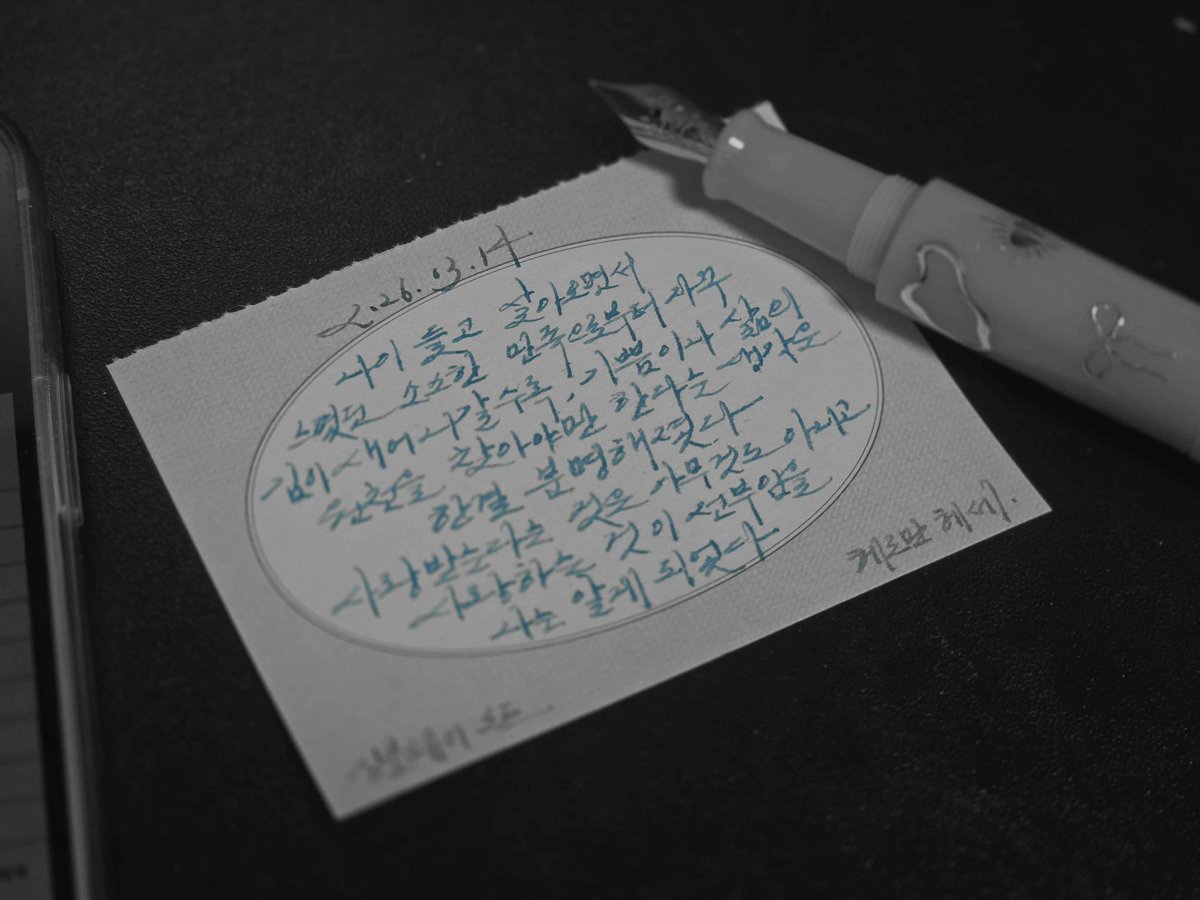 2.26.3.14
나이 들고 살아오면서
느꼈던 소소한 만족으로부터 자꾸
김이 새어나갈수록, 기쁨이나 삶의
원천을 찾아야만 한다는 생각은
한결 분명해졌다
사랑받는다는 것은 아무것도 아니고
사랑하는 것이 전부임을
나는 알게 되었다
헤르만 헤세.